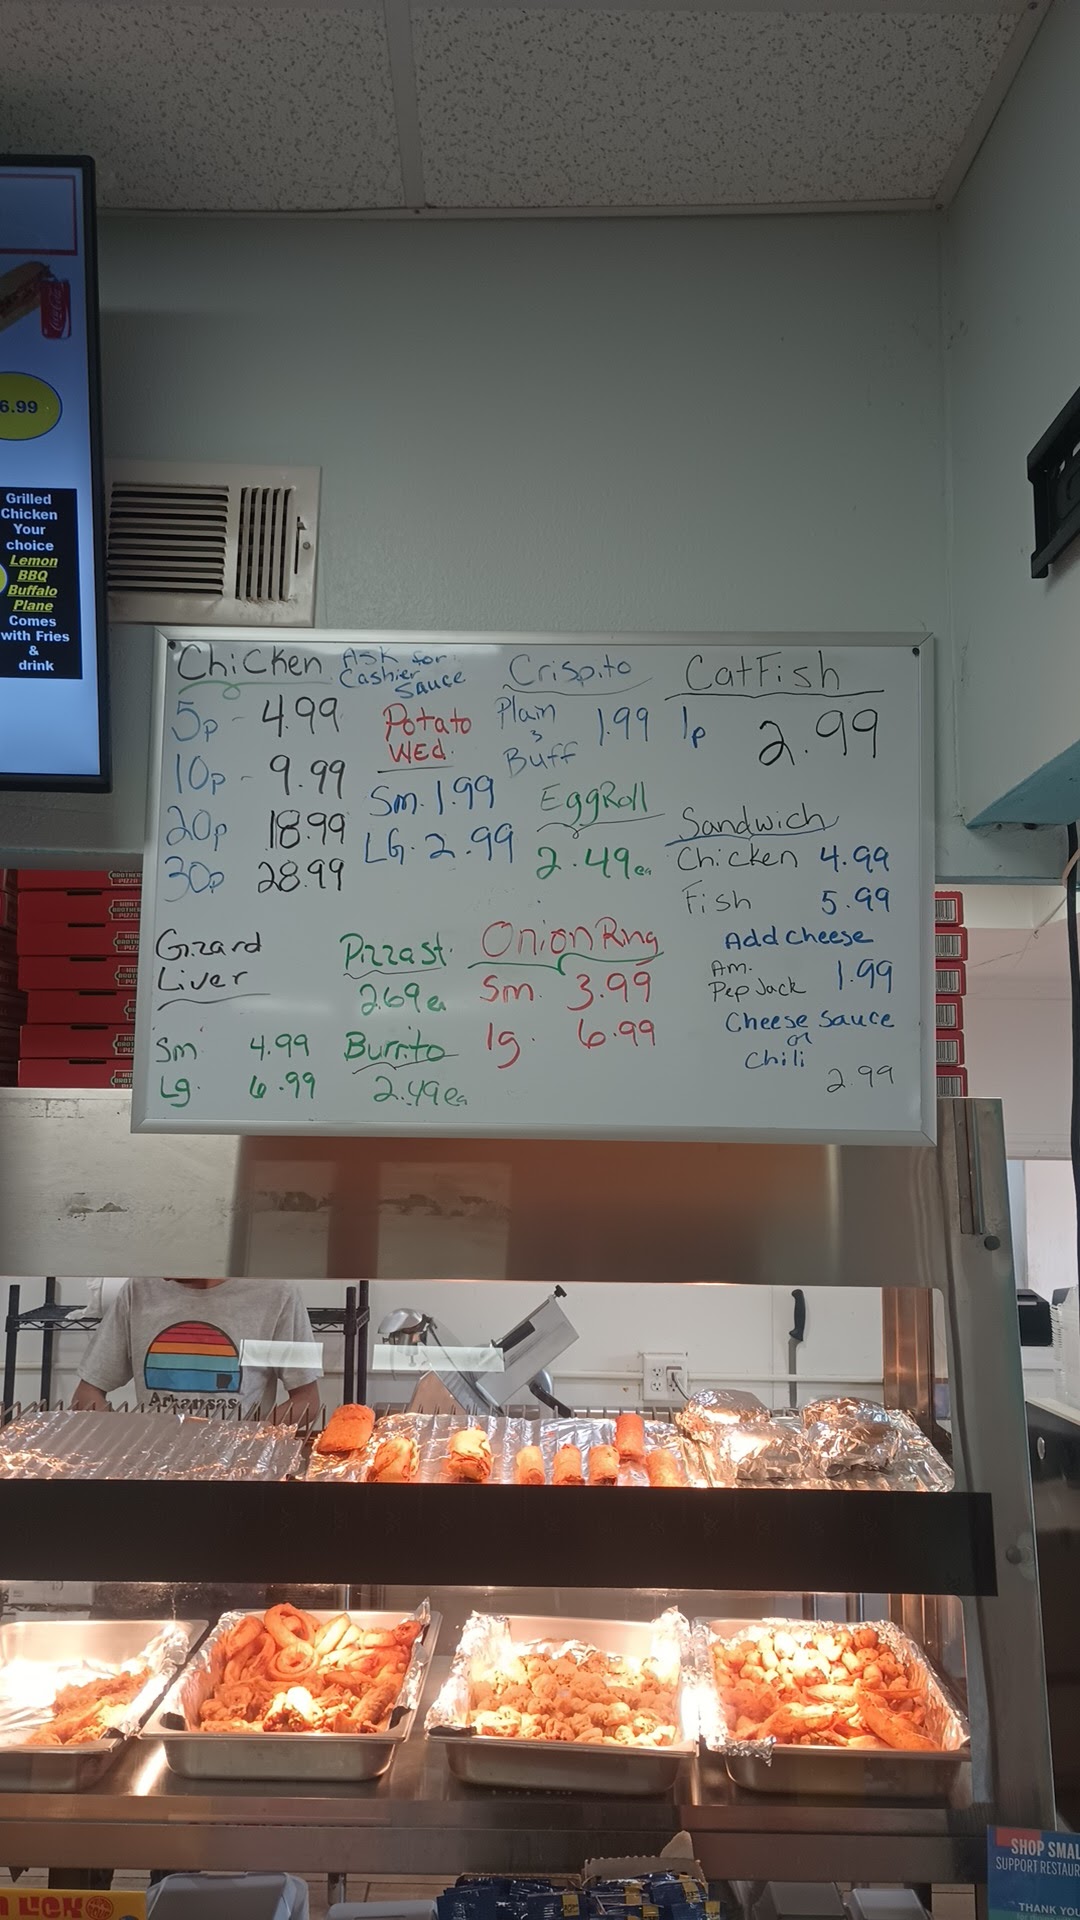 6.99
Grilled
Chicken
Your
choice
Lemon
BBQ
Buffalo
Plane
Comes
with Fries
&
drink
Chicken
Ask for
Cashier
Sauce
5p - 4.99
10p - 9.99
20p 18.99
30p 28.99
Potato
Wed.
Sm. 1.99
LG. 2.99
Crispito
Plain
&
Buff
1.99
EggRoll
2.49ea
CatFish
1p 2.99
Sandwich
Chicken 4.99
Fish 5.99
Add cheese
Am.
Pep Jack 1.99
Cheese Sauce
or
Chili
2.99
Gizard
Liver
Sm 4.99
Lg. 6.99
Pizza st.
2.69 ea
Burrito
2.49ea
Onion Ring
Sm. 3.99
lg. 6.99
Arkansas
SHOP SMAL
SUPPORT RESTAUR
THANK YOU